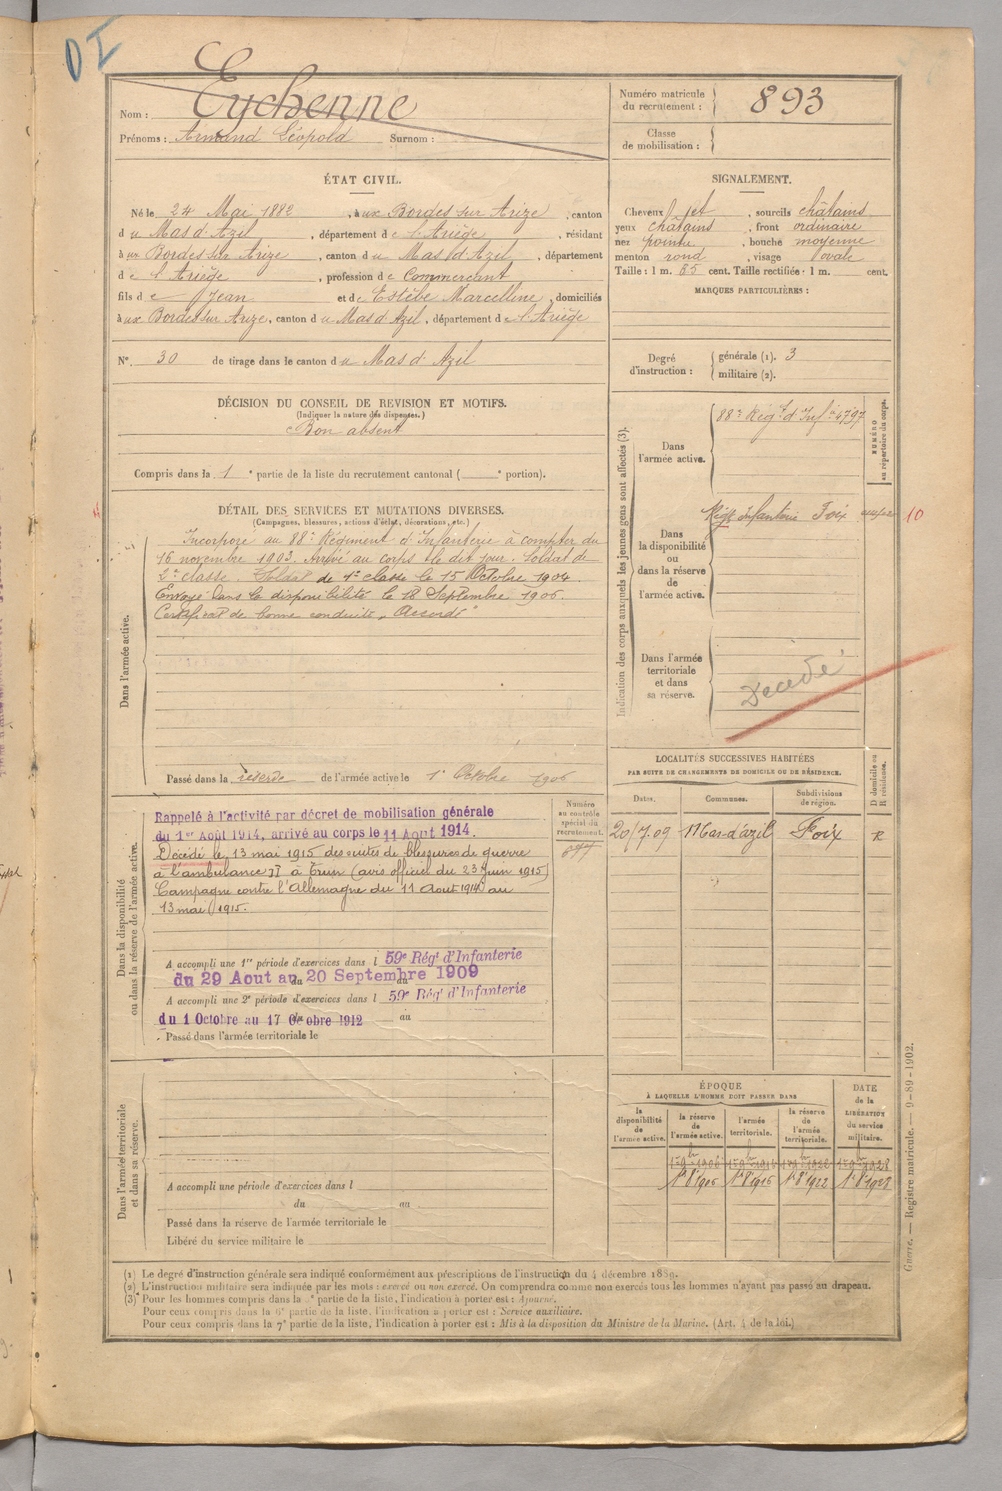 DI
Nom : Eychenne
Prénoms : Armand Léopold Surnom :
Numéro matricule du recrutement : 893
Classe de mobilisation :
ÉTAT CIVIL.
Né le 24 Mai 1882, à ux Bordes sur Arize, canton
d u Mas d'Azil, département de l'Ariège, résidant
à ux Bordes sur Arize, canton d u Mas d'Azil, département
d e l'Ariège, profession de Commerçant
fils d e Jean et de Estèbe Marcelline, domiciliés
à ux Bordes sur Arize, canton d u Mas d'Azil, département d e l'Ariège
N° 30 de tirage dans le canton d u Mas d'Azil
SIGNALEMENT.
Cheveux jet, sourcils châtains
yeux châtains, front ordinaire
nez pointu, bouche moyenne
menton rond, visage ovale
Taille : 1 m. 65 cent. Taille rectifiée : 1 m. cent.
MARQUES PARTICULIÈRES :
Degré d'instruction : générale (1). 3
militaire (2).
DÉCISION DU CONSEIL DE REVISION ET MOTIFS.
(Indiquer la nature des dispenses.)
Bon absent
Compris dans la 1e partie de la liste du recrutement cantonal ( e portion).
DÉTAIL DES SERVICES ET MUTATIONS DIVERSES.
(Campagnes, blessures, actions d'éclat, décorations, etc.)
Dans l'armée active.
Incorporé au 88e Régiment d'Infanterie à compter du
16 novembre 1903. Arrivé au corps le dit jour. Soldat de
2e classe. Soldat de 1e classe le 15 Octobre 1904.
Envoyé dans la disponibilité le 18 Septembre 1906.
Certificat de bonne conduite "Accordé"
Passé dans la réserve de l'armée active le 1er Octobre 1906
Indication des corps auxquels les jeunes gens sont affectés (3).
NUMÉRO au répertoire du corps.
Dans l'armée active.
88e Régt d'Infie 4797
Dans la disponibilité ou dans la réserve de l'armée active.
Régt infanterie Foix
10
Dans l'armée territoriale et dans sa réserve.
Décédé
Dans la disponibilité ou dans la réserve de l'armée active.
Numéro au contrôle spécial du recrutement.
877
Rappelé à l'activité par décret de mobilisation générale
du 1er Août 1914, arrivé au corps le 11 Aout 1914.
Décédé le 13 mai 1915 des suites de blessures de guerre
à l'ambulance II à Trun (avis officiel du 23 Juin 1915)
Campagne contre l'Allemagne du 11 Aout 1914 au
13 mai 1915.
A accompli une 1re période d'exercices dans l 59e Régt d'Infanterie
du 29 Aout au 20 Septembre 1909
A accompli une 2e période d'exercices dans l 59e Régt d'Infanterie
du 1 Octobre au 17 Octobre 1912 au
Passé dans l'armée territoriale le
LOCALITÉS SUCCESSIVES HABITÉES
PAR SUITE DE CHANGEMENTS DE DOMICILE OU DE RÉSIDENCE.
Dates. Communes. Subdivisions de région. D domicile ou R résidence.
20/7.09 Mas-d'azil Foix R
Dans l'armée territoriale et dans sa réserve.
A accompli une période d'exercices dans l
du au
Passé dans la réserve de l'armée territoriale le
Libéré du service militaire le
ÉPOQUE
À LAQUELLE L'HOMME DOIT PASSER DANS
DATE de la LIBÉRATION du service militaire.
la disponibilité de l'armée active. la réserve de l'armée active. l'armée territoriale. la réserve de l'armée territoriale.
(1) Le degré d'instruction générale sera indiqué conformément aux prescriptions de l'instruction du 4 décembre 1889.
(2) L'instruction militaire sera indiquée par les mots : exercé ou non exercé. On comprendra comme non exercés tous les hommes n'ayant pas passé au drapeau.
(3) Pour les hommes compris dans la partie de la liste, l'indication à porter est : Ajourné.
Pour ceux compris dans la 6e partie de la liste, l'indication à porter est : Service auxiliaire.
Pour ceux compris dans la 7e partie de la liste, l'indication à porter est : Mis à la disposition du Ministre de la Marine. (Art. 4 de la loi.)
Guerre. — Registre matricule. — 9-89-1902.